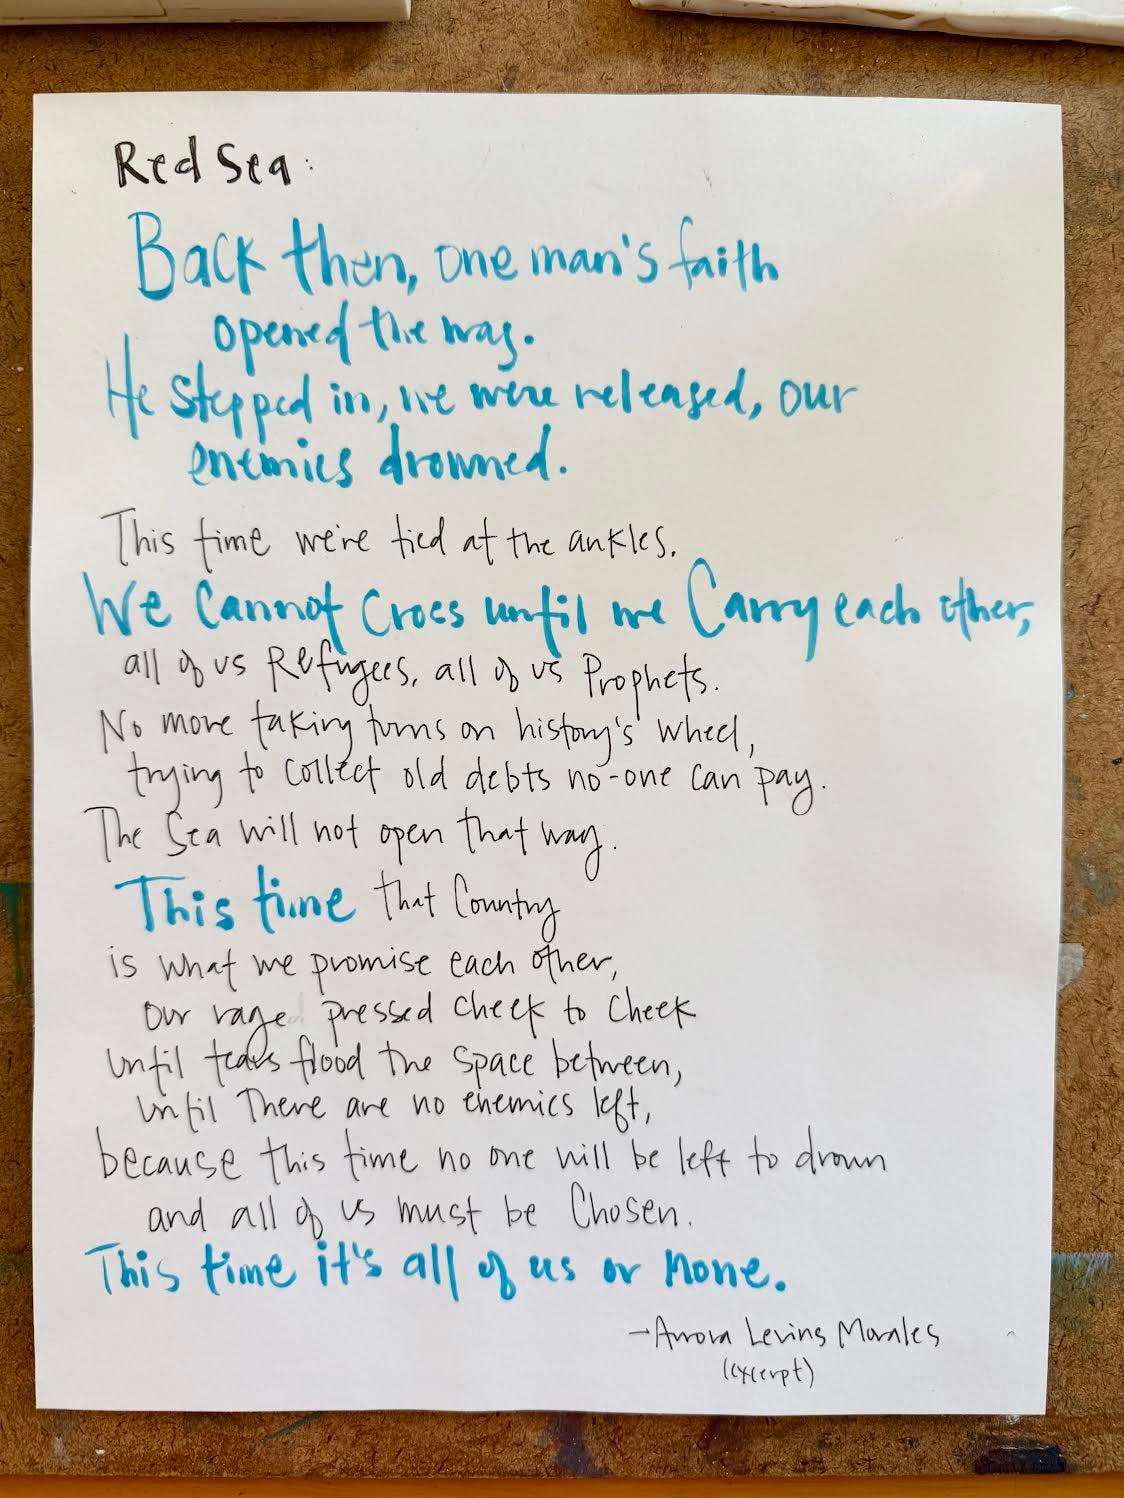 Red Sea:
Back then, one man's faith
opened the way.
He stepped in, we were released, our
enemies drowned.
This time we're tied at the ankles.
We Cannot Cross until we Carry each other,
all of us Refugees, all of us Prophets.
No more taking turns on history's wheel,
trying to collect old debts no-one can pay.
The Sea will not open that way.
This time that Country
is what we promise each other,
our rage pressed cheek to cheek
until tears flood the space between,
until There are no enemies left,
because this time no one will be left to drown
and all of us must be Chosen.
This time it's all of us or none.
-Aurora Levins Morales
(excerpt)